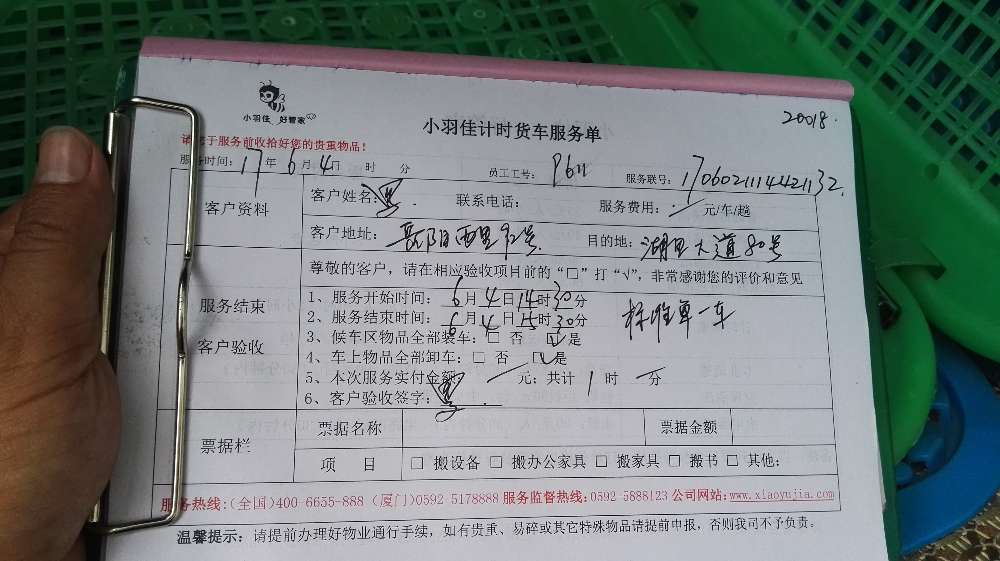 小羽佳 好管家
小羽佳计时货车服务单
20018
请您于服务前收拾好您的贵重物品！
服务时间：17年6月4日 时 分 员工工号： 服务联号：1706021114421132
客户资料
客户姓名： 联系电话： 服务费用： 元/车/趟
客户地址：岳阳西里 号 目的地：湖里大道80号
服务结束
客户验收
尊敬的客户，请在相应验收项目前的“□”打“√”，非常感谢您的评价和意见
1、服务开始时间：6月4日14时30分
标准单一车
2、服务结束时间：6月4日15时30分
3、候车区物品全部装车：□ 否 ☑是
4、车上物品全部卸车：□ 否 ☑是
5、本次服务实付金额 元；共计1时 分
6、客户验收签字：
票据栏
票据名称 票据金额
项 目 □ 搬设备 □ 搬办公家具 □ 搬家具 □ 搬书 □ 其他：
服务热线：(全国)400-6655-888 (厦门)0592 5178888 服务监督热线：0592-5888123 公司网站：www.xiaoyujia.com
温馨提示：请提前办理好物业通行手续，如有贵重、易碎或其它特殊物品请提前申报，否则我司不予负责。